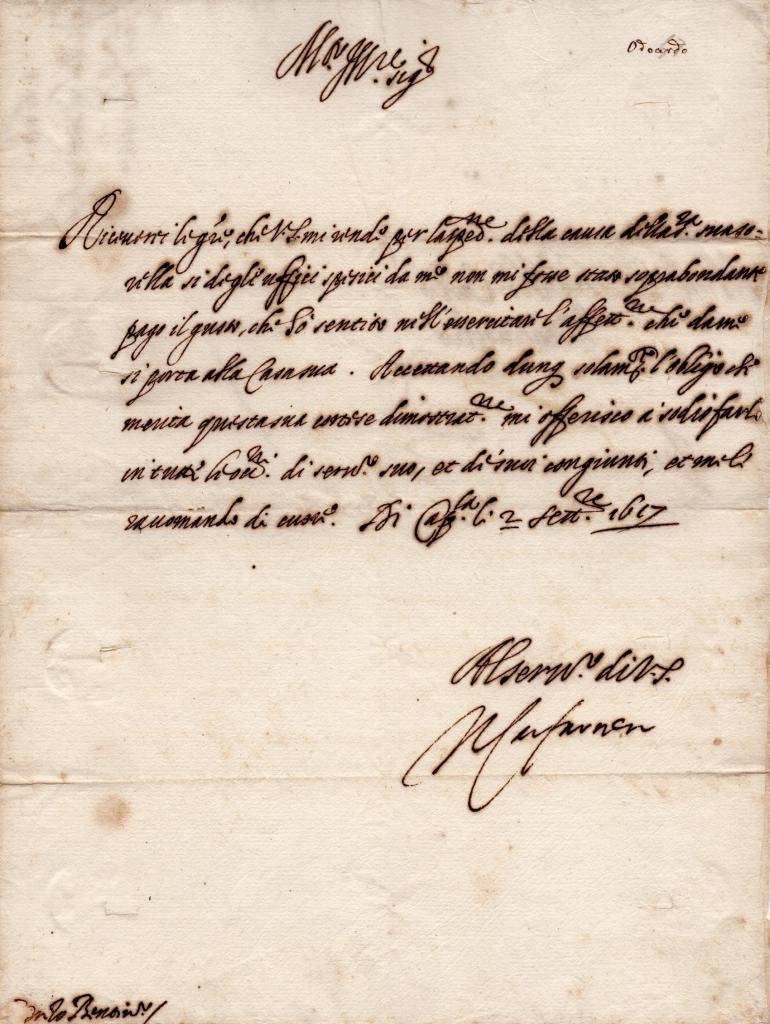 Odoardo
Mto Ill.re sig.r
Riceverei le gr.e, che V.S. mi rende per la sped.ne della causa della S.ra
rella si degl'uffici da me non mi fosse stato soprabondante
pago il gusto, che hò sentito nell'essercitare l'affett.ne che da me
si porta alla Casa sua. Accettando dunq solam.te l'obligo che
merita questa sua cortese dimostrat.ne mi offerisco a sodisfarlo
in tutte le occ.ni di serv.o suo, et de suoi congiunti, et me le
racomando di cuore. Di Cap.la li 2 Sett.re 1617
Al serv.o di V.S.
Farnese